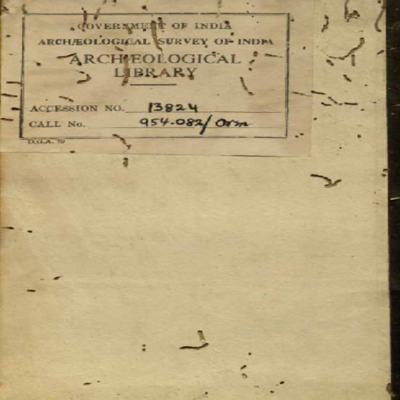 GOVERNMENT OF INDIA
ARCHÆOLOGICAL SURVEY OF INDIA
ARCHÆOLOGICAL
LIBRARY
ACCESSION NO. 13824
CALL No. 954.082/Orm
D.G.A. 79